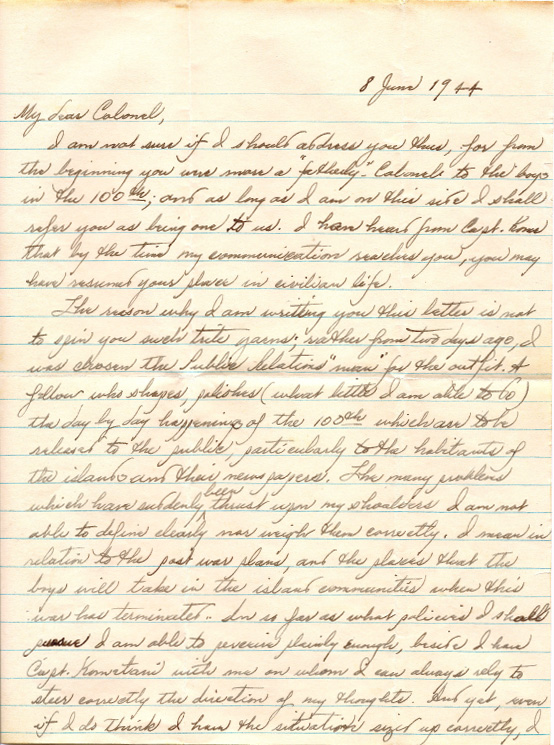 8 June 1944
My dear Colonel,
I am not sure if I should address you thus, for from
the beginning you were more a "fatherly" Colonel to the boys
in the 100th; and as long as I am on this side I shall
refer you as being one to us. I have heard from Capt. Kome
that by the time my communication reaches you, you may
have resumed your place in civilian life.
The reason why I am writing you this letter is not
to spin you such trite yarns; rather from two days ago, I
was chosen the Public Relations "man" for the outfit. A
fellow who shapes, polishes (what little I am able to do)
the day by day happenings of the 100th which are to be
released to the public, particularly to the habitants of
the islands and their newspapers. The many problems
which have suddenly been thrust upon my shoulders I am not
able to define clearly nor weigh them correctly. I mean in
relation to the post war plans, and the places that the
boys will take in the island communities when this
war has terminated. In so far as what policies I shall
pursue I am able to perceive plainly enough, beside I have
Capt. Kometani with me on whom I can always rely to
steer correctly the direction of my thoughts. And yet, even
if I do think I have the situation sized up correctly, I